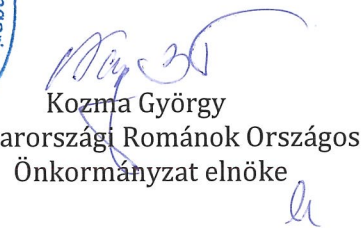 Kozma György
arországi Románok Országos
Önkormányzat elnöke